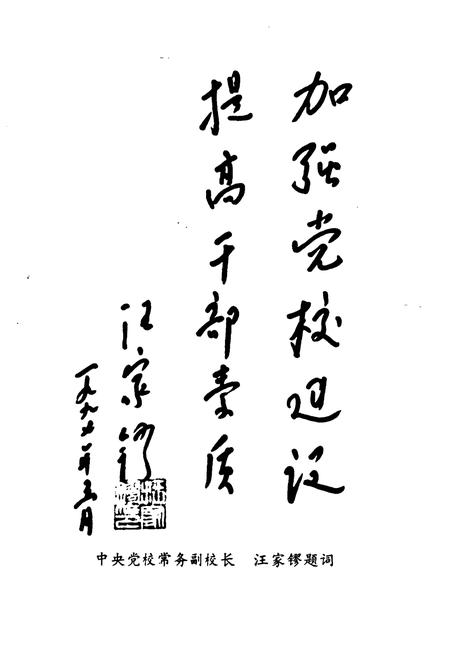 加强党校建设
提高干部素质
汪家镠
一九九七年三月
中央党校常务副校长 汪家镠题词